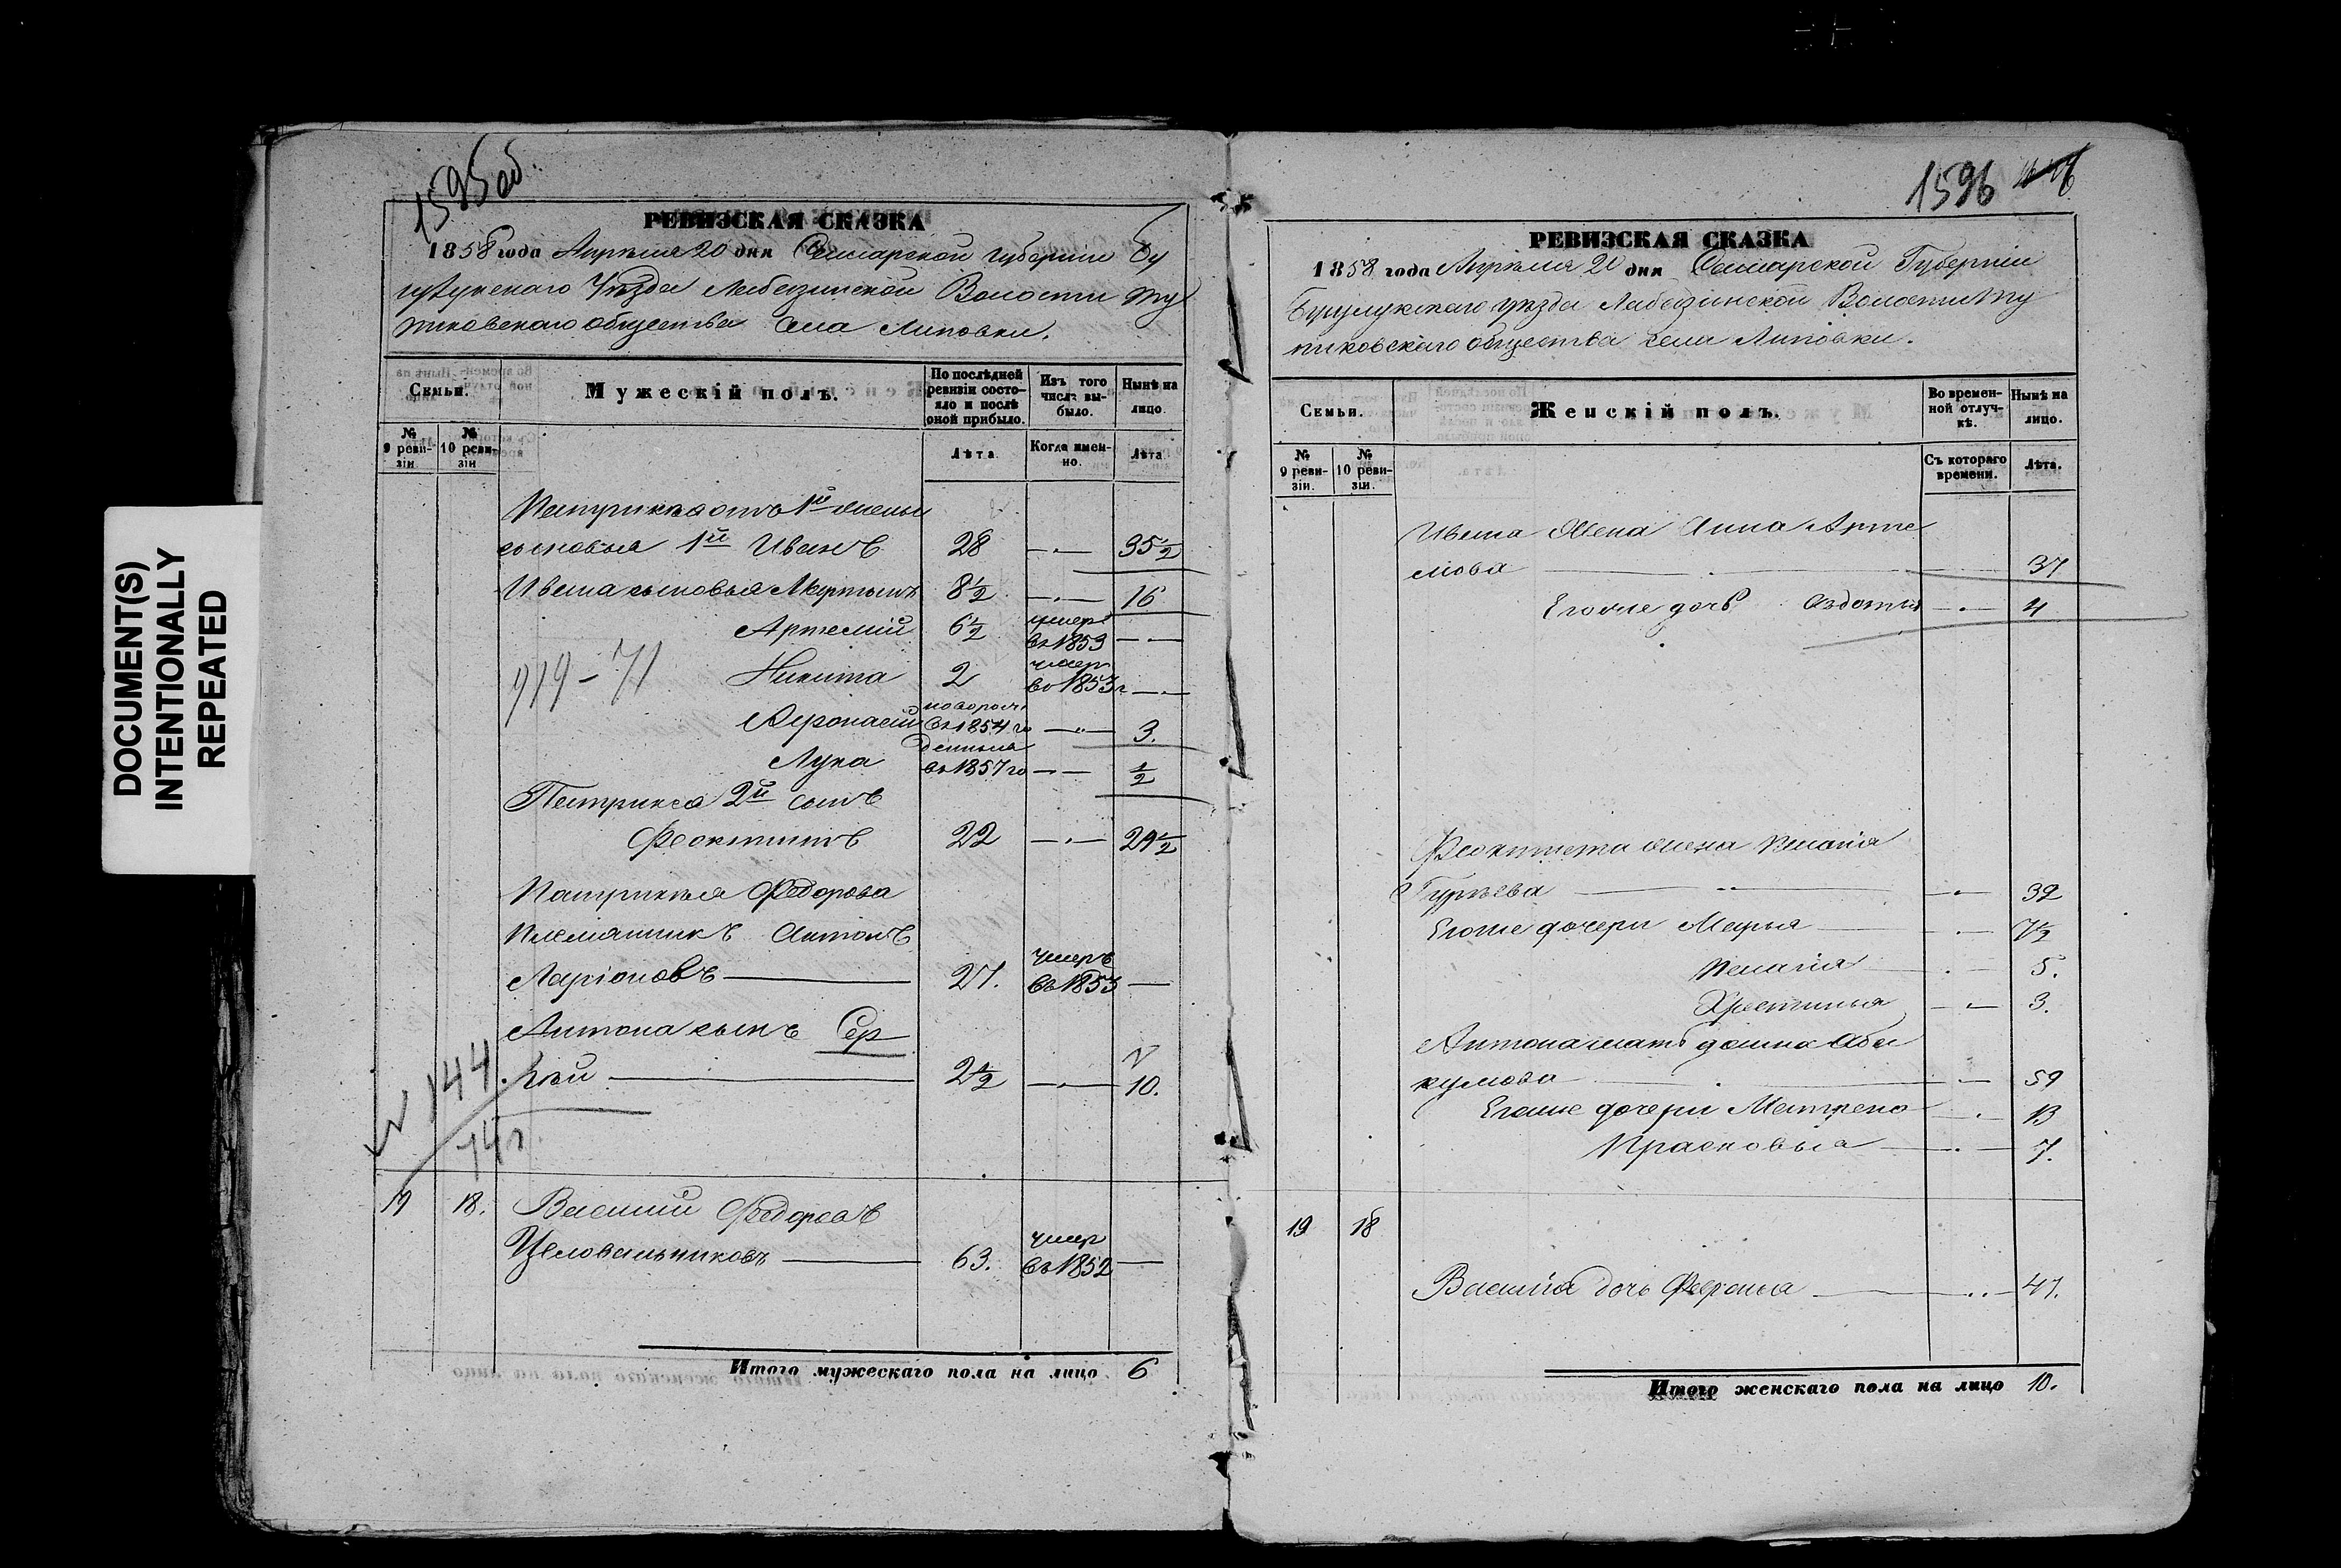 DOCUMENT(S)
INTENTIONALLY
REPEATED
1595об.
РЕВИЗСКАЯ СКАЗКА
1858 года Апреля 20 дня Самарской губернии Бу
гузулускаго Уезда Лабазинской Волости
общества села Липовки.
Семьи.
Мужескій полъ.
По послѣдней ревизіи состояло и послѣ оной прибыло.
Изъ того числа выбыло.
Нынѣ на лицо.
№ 9 ревизіи
№ 10 ревизіи
Лѣта
Когда именно.
Лѣта
Патрикѣя отъ 1й жены
сыновья 1й Иванъ 28 — 35½
Ивана сыновья Мартынъ 8½ — 16
Артемій 6½ умеръ въ 1853 —
919-71
Никита 2 умеръ въ 1853 г —
Афонасій новорож въ 1854 го — 3.
Лука денныя въ 1857 го — ½
Патрикѣя 2й сынъ
Феоктистъ 22 — 29½
Патрикѣя Федорова
племянникъ Антонъ
Ларіоновъ 27. умеръ въ 1853 —
Антона сынъ Сер
гѣй 2½ — 10.
144
19 18. Василий Федоровъ
Целовальниковъ 63. умеръ въ 1852 —
Итого мужескаго пола на лицо 6
1596
РЕВИЗСКАЯ СКАЗКА
1858 года Апреля 20 дня Самарской Губерніи
Бузулукскаго уѣзда Лабазинской Волости
общества села Липовки.
Семьи.
Женскій полъ.
Во временной отлучкѣ.
Нынѣ на лицо.
№ 9 ревизіи.
№ 10 ревизіи.
Съ котораго времени.
Лѣта.
Ивана жена Анна Арте
мова — 37
Его же дочь Авдотья — 4
Феоктиста жена Пелагія
Гурьева — 32
Его же дочери Марья — 7½
Пелагія — 5.
Христинья — 3.
Антона мать Домна Аба
кумова — 59
Его же дочери Матрена — 13
Прасковья — 7.
19 18
Василія дочь — 47.
Итого женскаго пола на лицо 10.